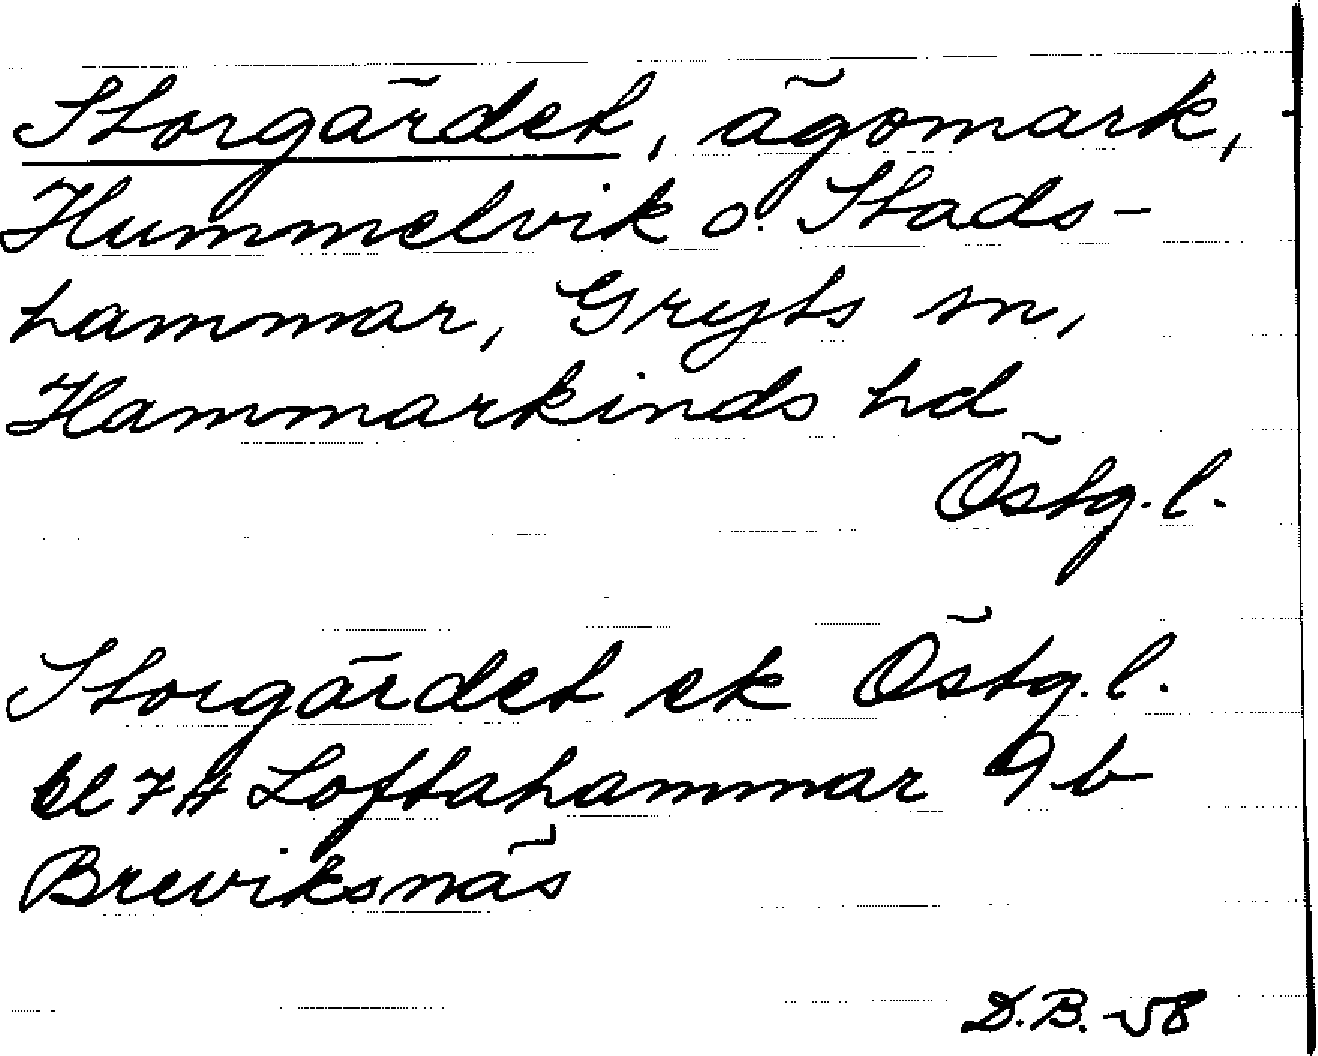 Storgärdet, ägomark,
Hummelvik o. Stads-
hammar, Gryts sn,
Hammarkinds hd
Östg. l.
Storgärdet ek Östg. l.
bl 74 Loftahammar 9b
Breviksnäs
D.B. -58